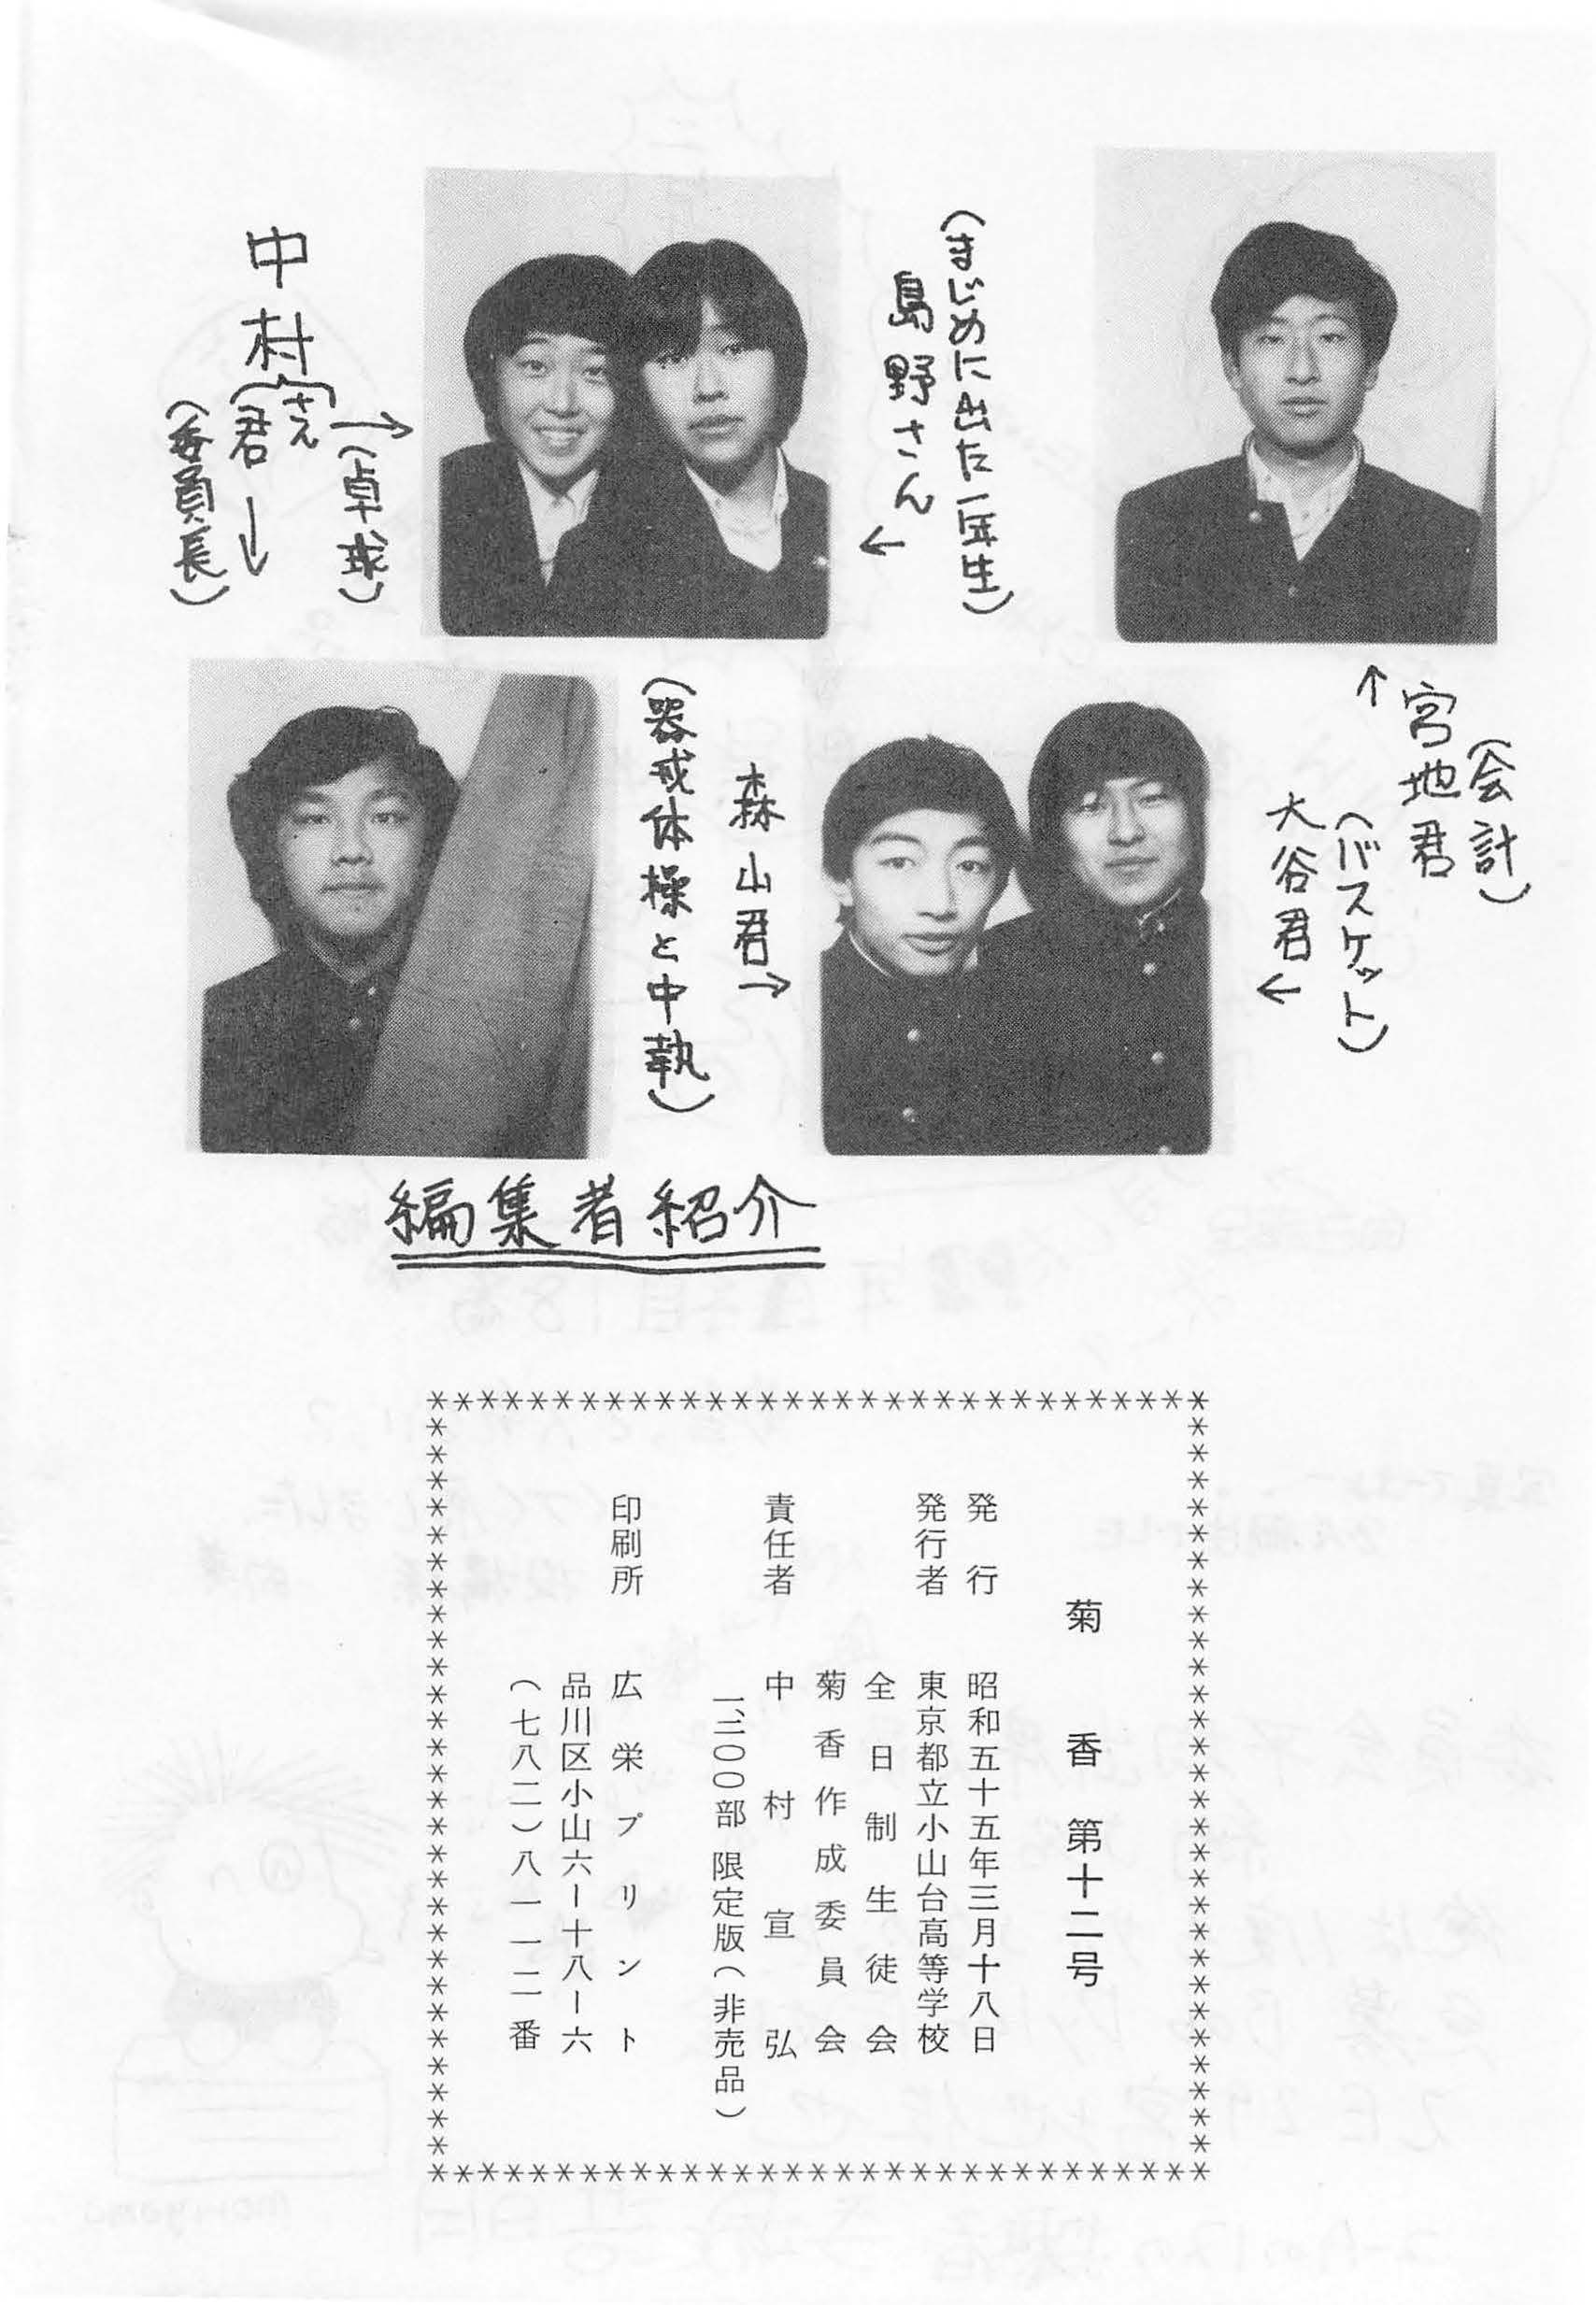 (会計)
宮地君
(バスケット)
大谷君
(まじめに出た一年生)
島野さん
森山君
(器戒体操と中執)
中村
(さん
君)
(卓球)
(委員長)
編集者紹介
菊香 第十二号
発行 昭和五十五年三月十八日
発行者 東京都立小山台高等学校
全日制生徒会
菊香作成委員会
責任者 中村宣弘
限定版(非売品)
印刷所 広栄プリント
品川区小山六ー十八ー六
(七八二)八一一二番